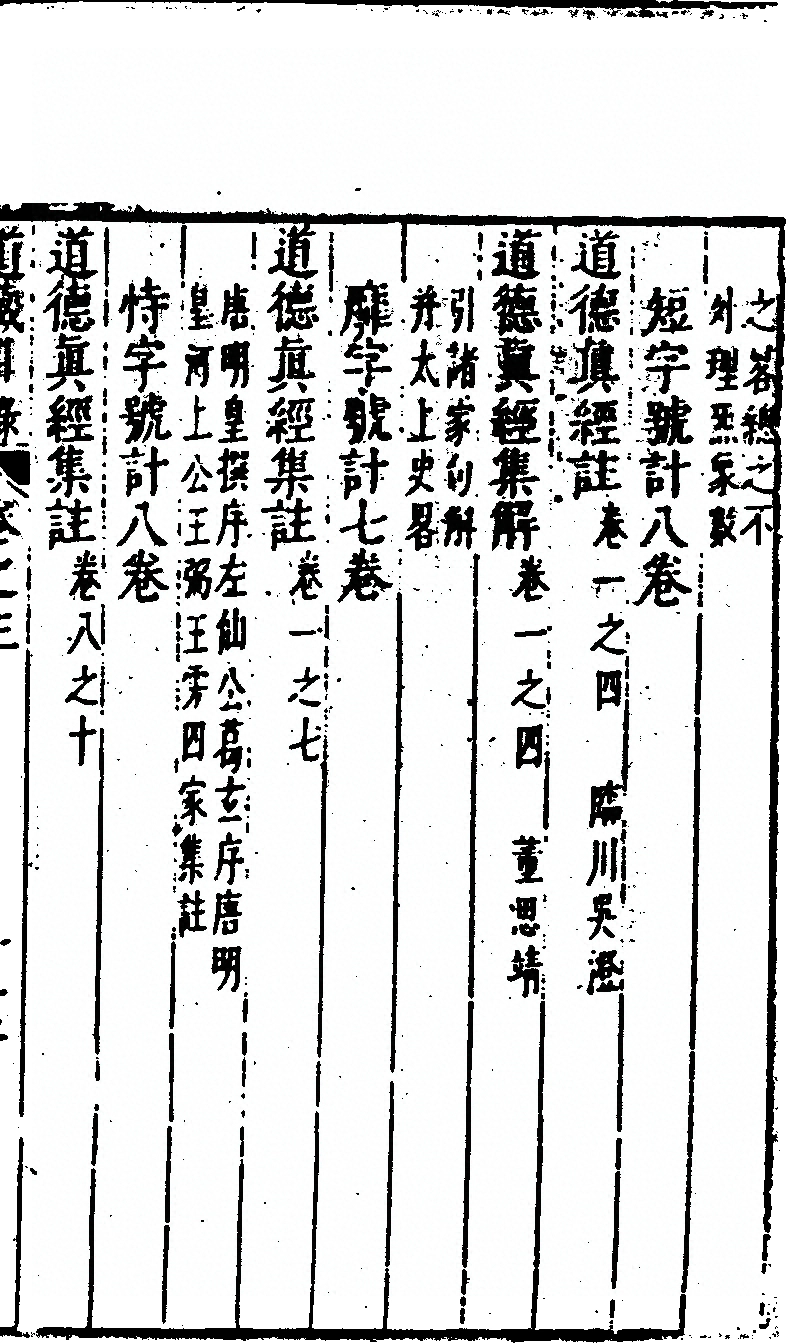 之畧總之不
外理炁象數
短字號計八卷
道德眞經註卷一之四　臨川吳澄
道德眞經集解卷一之四　董思靖
引諸家句解
并太上史畧
靡字號計七卷
道德眞經集註卷一之七
唐明皇撰序左仙公葛玄序唐明
皇河上公王弼王雱四家集註
恃字號計八卷
道德眞經集註卷八之十
道藏目錄　卷之三